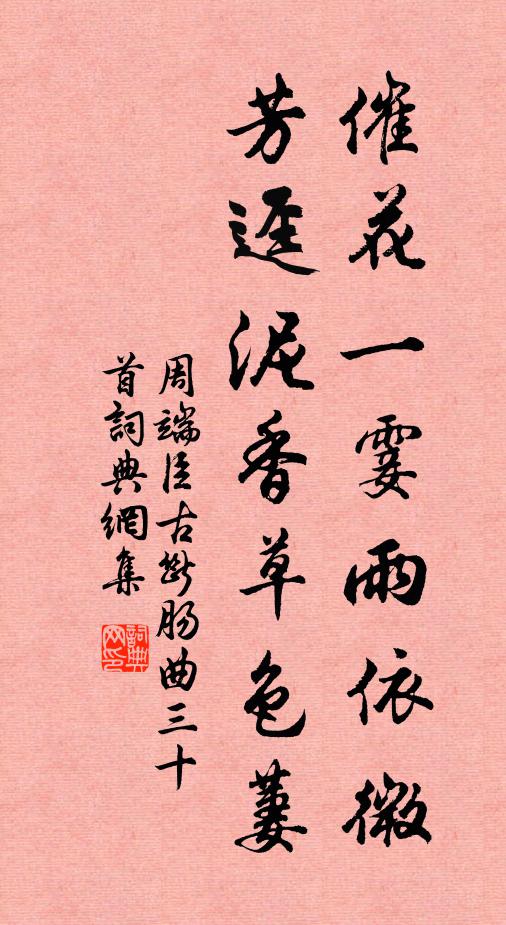 催花一霎雨依微
芳逕泥香草色萋
周端臣古断肠曲三十
首詞典網集
詞典
网印